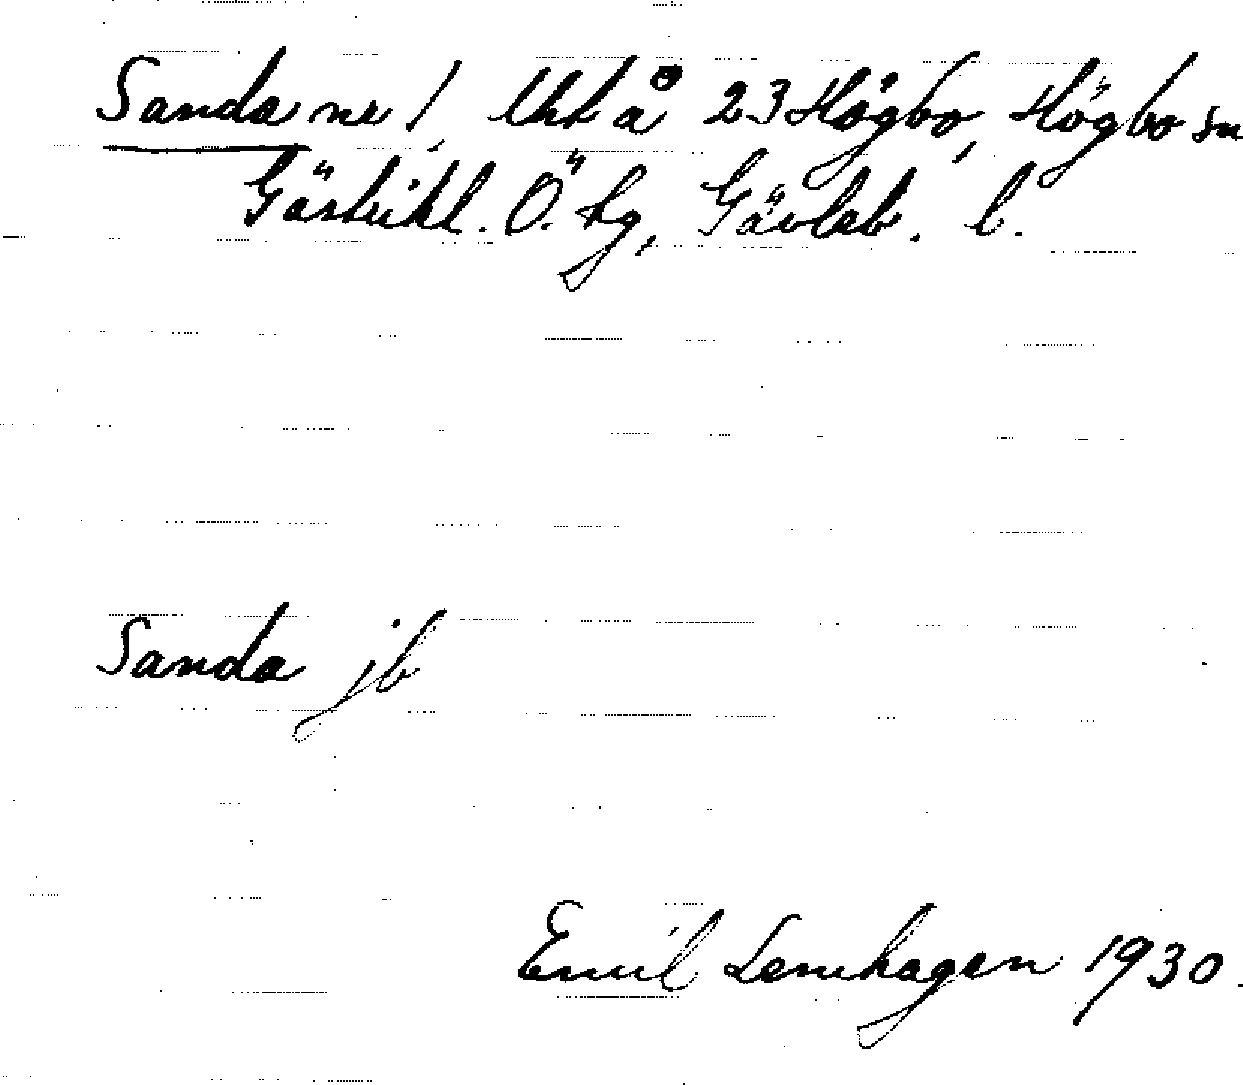 Sanda nr 1, Uht å 23 Högbo, Högbo sn
Gästrikl. Ö. hg, Gävleb. l.
Sanda jb
Emil Lernhagen 1930.